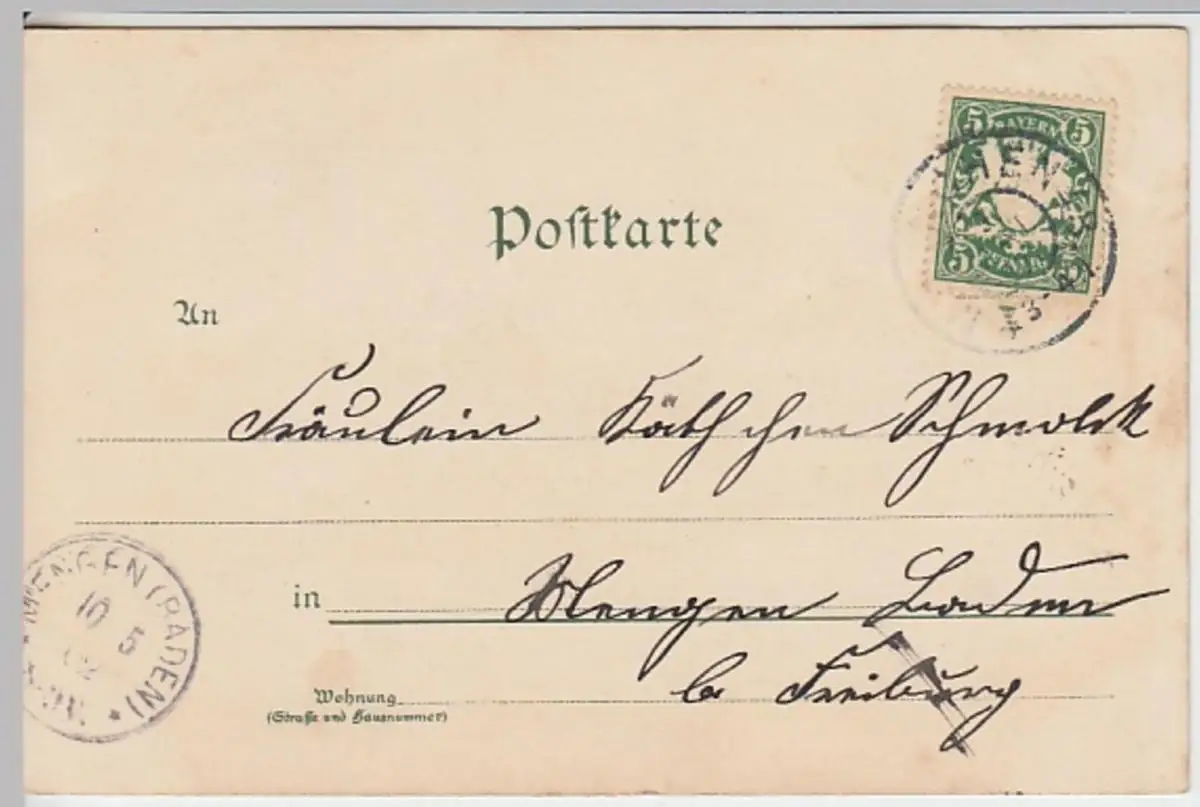 5 BAYERN 5
5
HEN
Postkarte
An
Fräulein Käthchen Schmolck
in Mengen Baden
b. Freiburg
Wohnung
(Straße und Hausnummer)
MENGEN (BADEN)
10 5
02